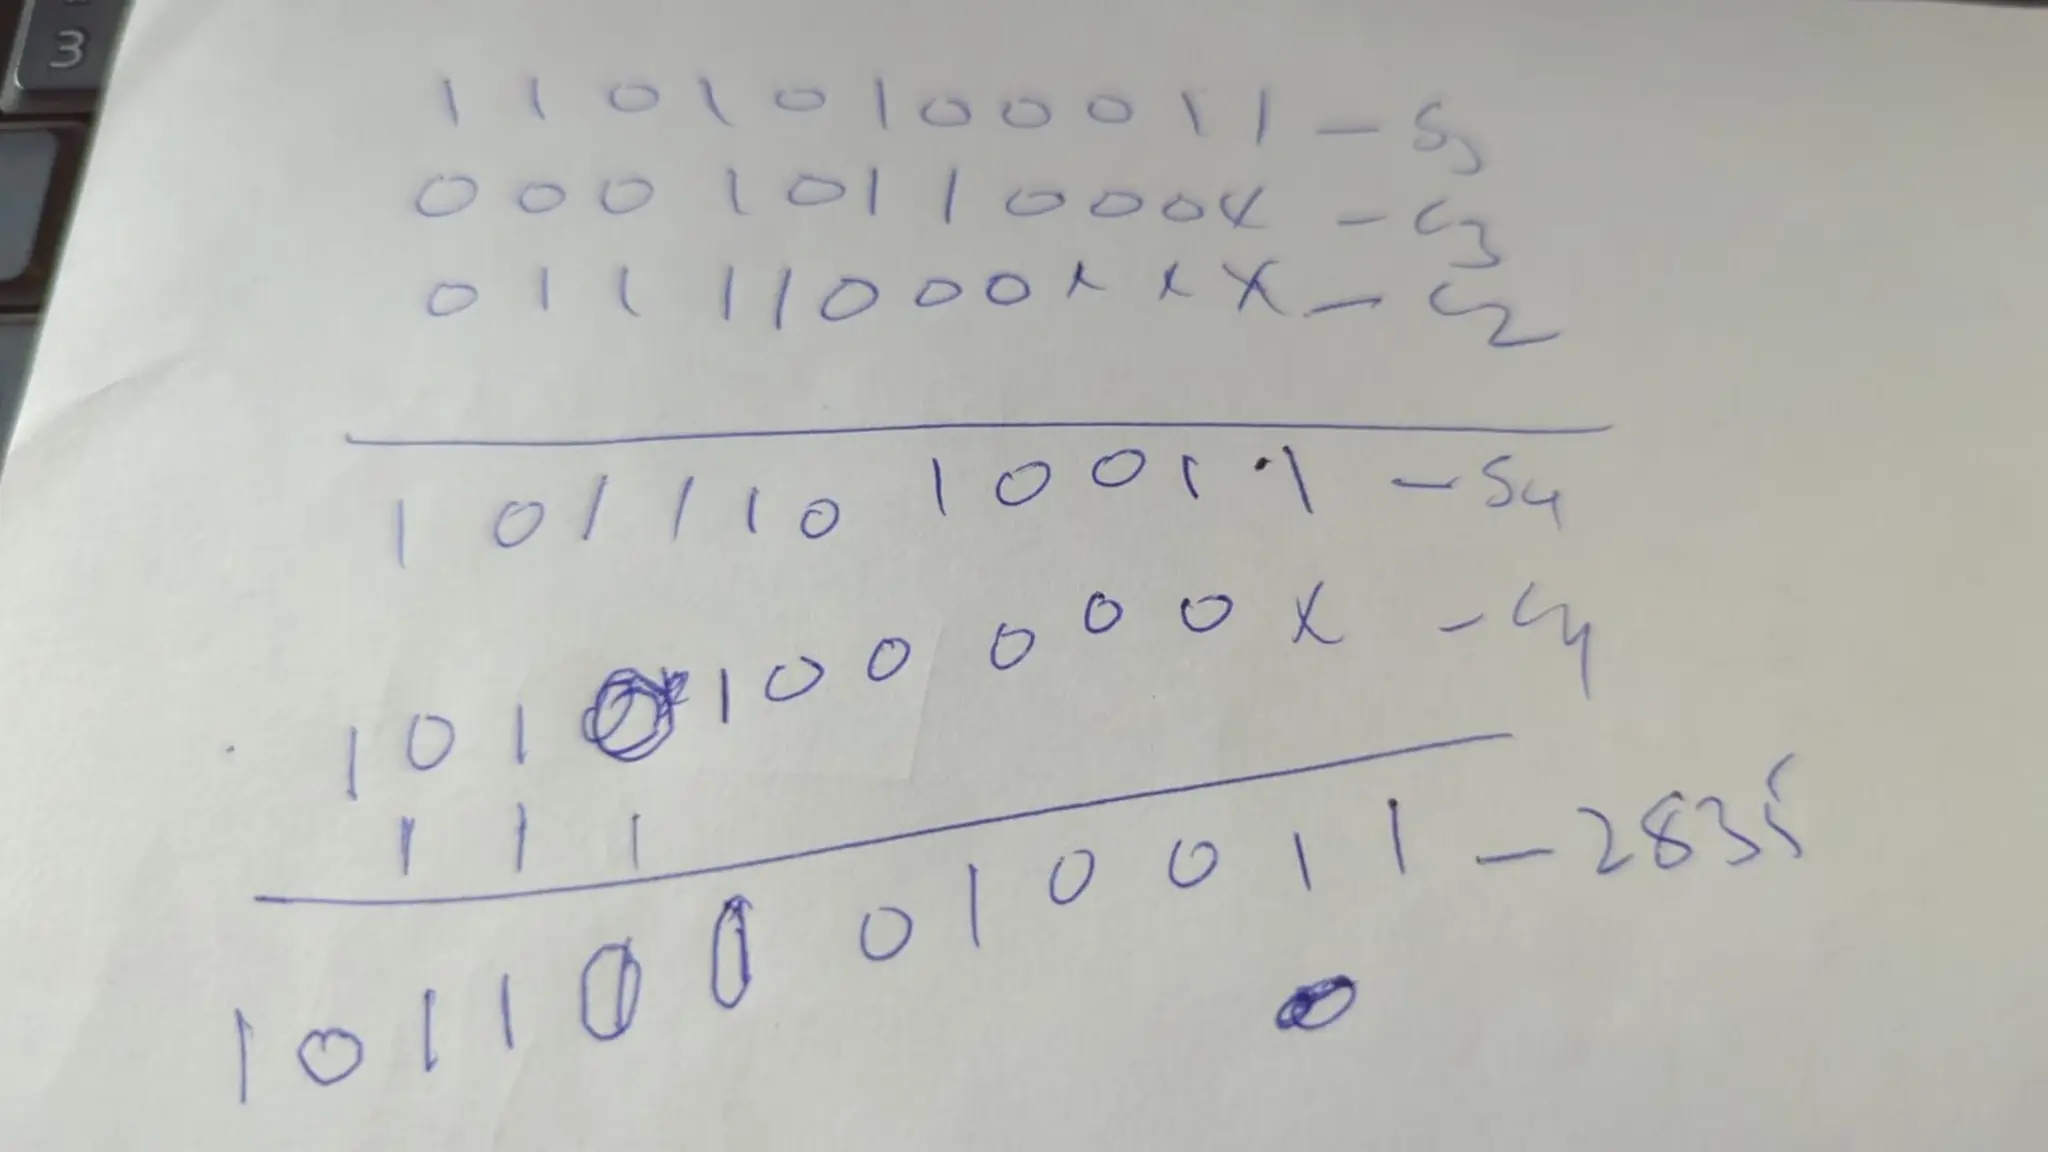 3
1 1 0 1 0 1 0 0 0 1 1 - S3
0 0 0 1 0 1 1 0 0 0 0 X - C3
0 1 1 1 1 0 0 0 X X X - C2
1 0 1 1 1 0 1 0 0 1 1 - S4
1 0 1 0 1 0 0 0 0 0 X - C4
1 1 1
1 0 1 1 0 0 0 1 0 0 1 1 - 2835
0